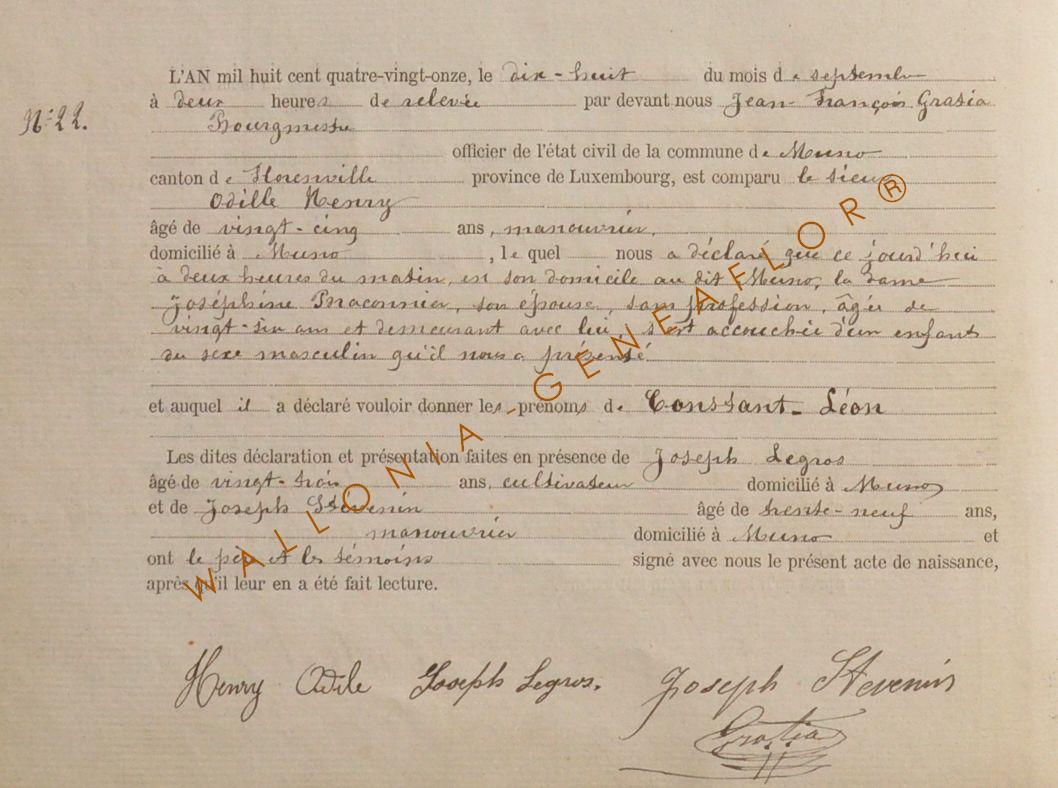 L'AN mil huit cent quatre-vingt-onze, le dix-huit du mois de septembre
N° 22. à deux heures de relevée par devant nous Jean-François Grasia
Bourgmestre
officier de l'état civil de la commune de Muno
canton de Florenville province de Luxembourg, est comparu le sieur
Odille Henry
âgé de vingt-cinq ans, manouvrier,
domicilié à Muno, lequel nous a déclaré que ce jourd'hui
à deux heures du matin, en son domicile au dit Muno, la dame
Joséphine Braconnier, son épouse, sans profession, âgée de
vingt-six ans et demeurant avec lui, s'est accouchée d'un enfants
du sexe masculin qu'il nous a présenté.
et auquel il a déclaré vouloir donner les prénoms de Constant-Léon
Les dites déclaration et présentation faites en présence de Joseph Legros
âgé de vingt-trois ans, cultivateur domicilié à Muno
et de Joseph Stévenin âgé de trente-neuf ans,
manouvrier domicilié à Muno et
ont le père et les témoins signé avec nous le présent acte de naissance,
après qu'il leur en a été fait lecture.
Henry Odile Joseph Legros. Joseph Stevenin
Grasia
WALLONIA-GENEAFLOR®